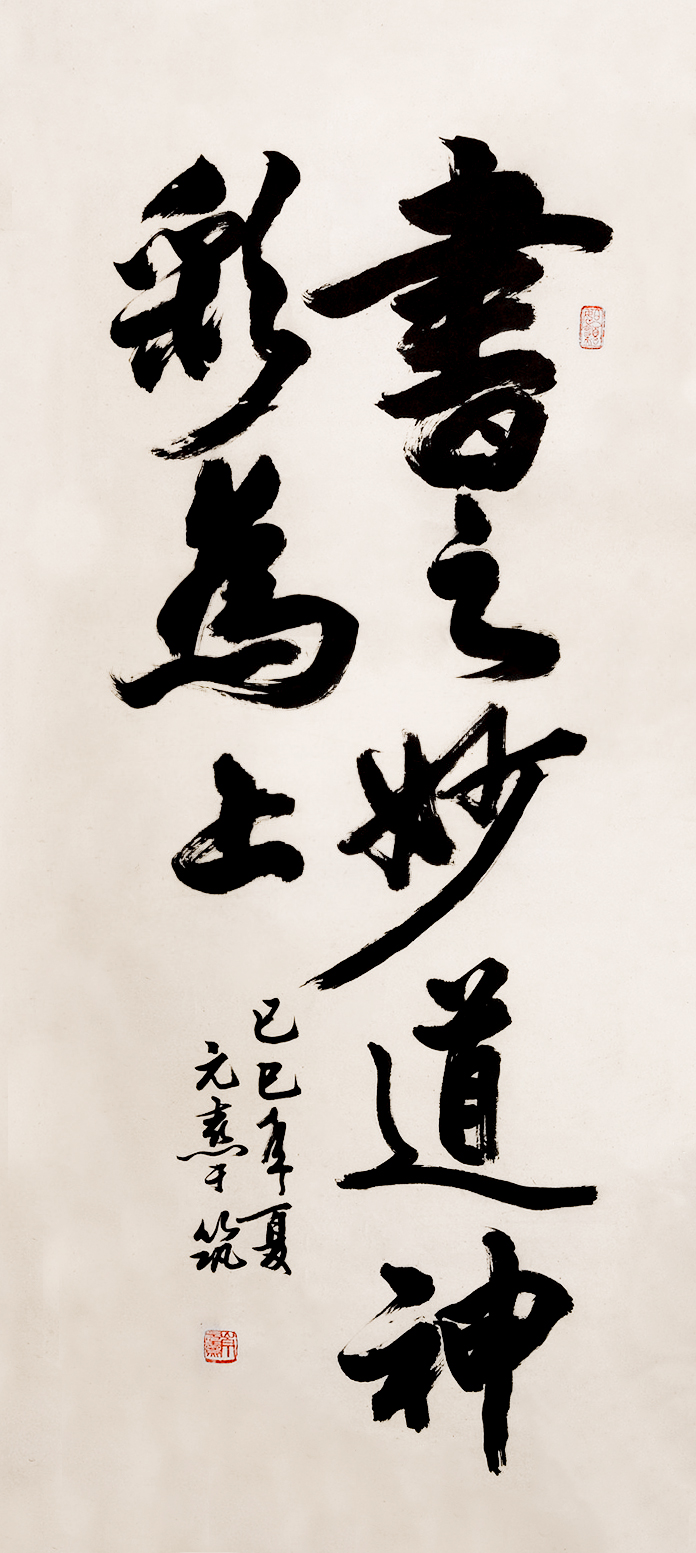 書之妙道神
彩為上
己巳年夏
元燾于筑